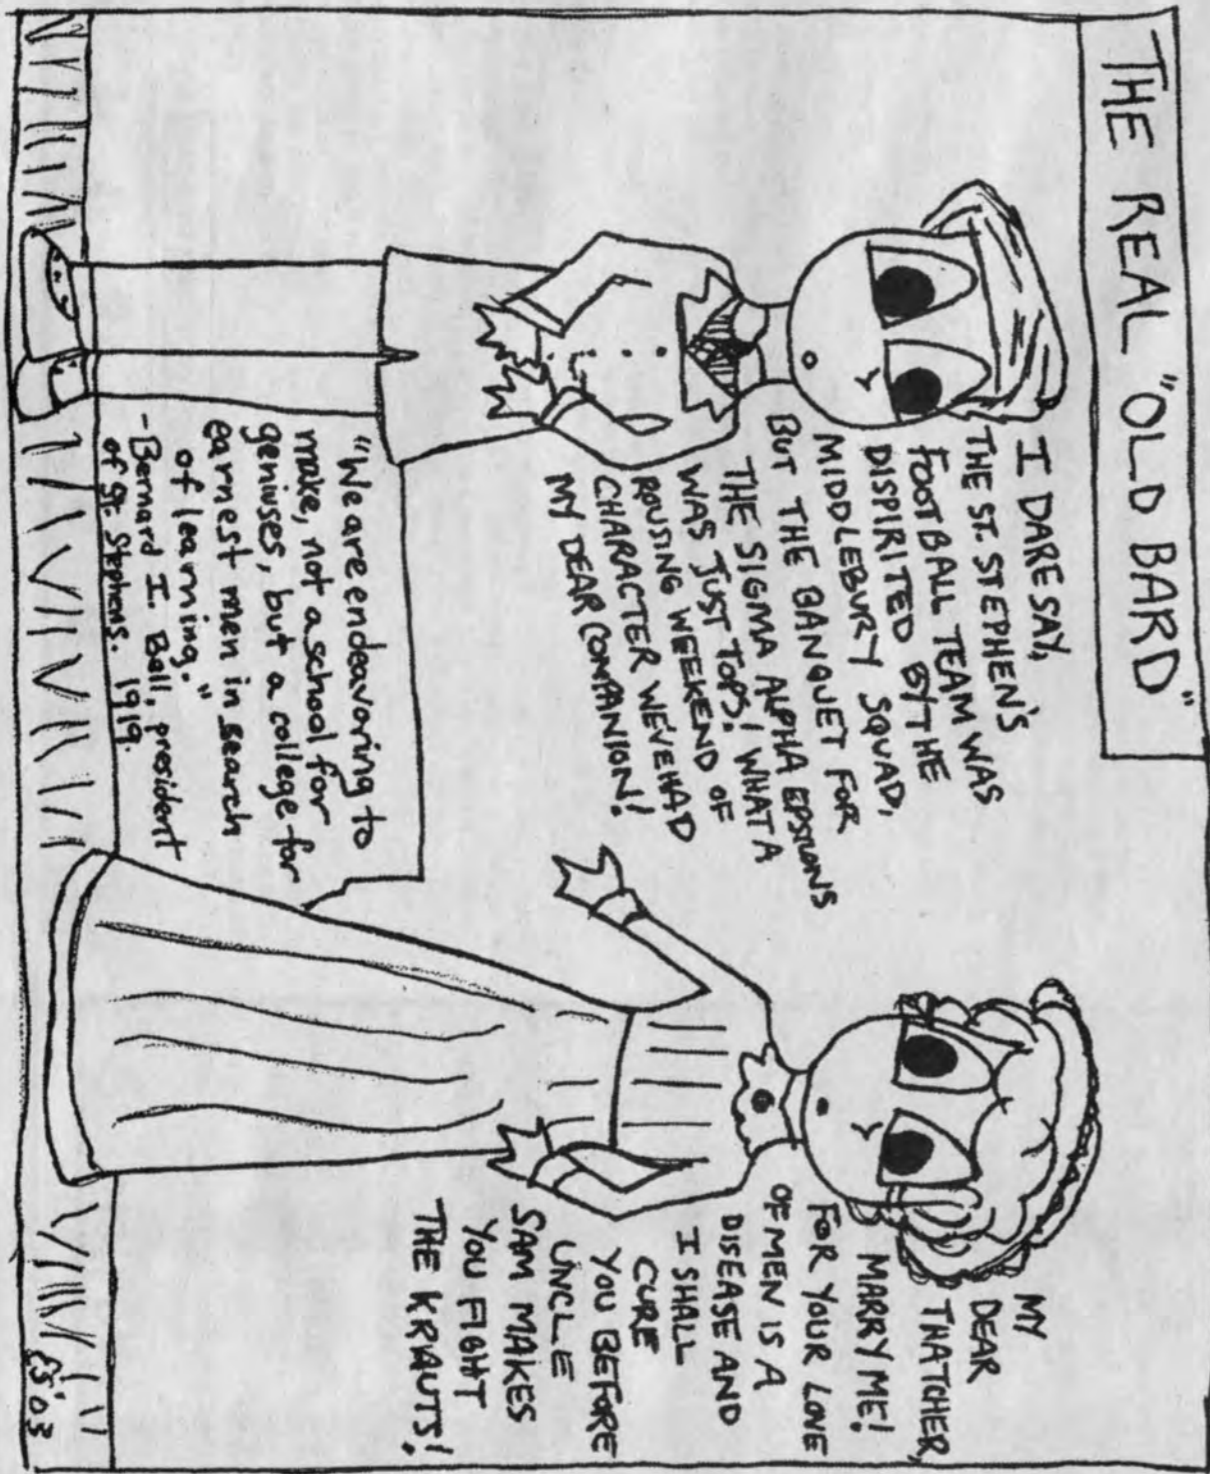 THE REAL "OLD BARD"
I DARE SAY,
THE ST. STEPHEN'S
FOOTBALL TEAM WAS
DISPIRITED BY THE
MIDDLEBURY SQUAD,
BUT THE BANQUET FOR
THE SIGMA ALPHA EPSILONS
WAS JUST TOPS! WHAT A
ROUSING WEEKEND OF
CHARACTER WE'VE HAD
MY DEAR COMPANION!
MY
DEAR
THATCHER,
MARRY ME!
FOR YOUR LOVE
OF MEN IS A
DISEASE AND
I SHALL
CURE
YOU BEFORE
UNCLE
SAM MAKES
YOU FIGHT
THE KRAUTS!
"We are endeavoring to
make, not a school for
geniuses, but a college for
earnest men in search
of learning."
-Bernard I. Ball, president
of St. Stephens. 1919.
'03